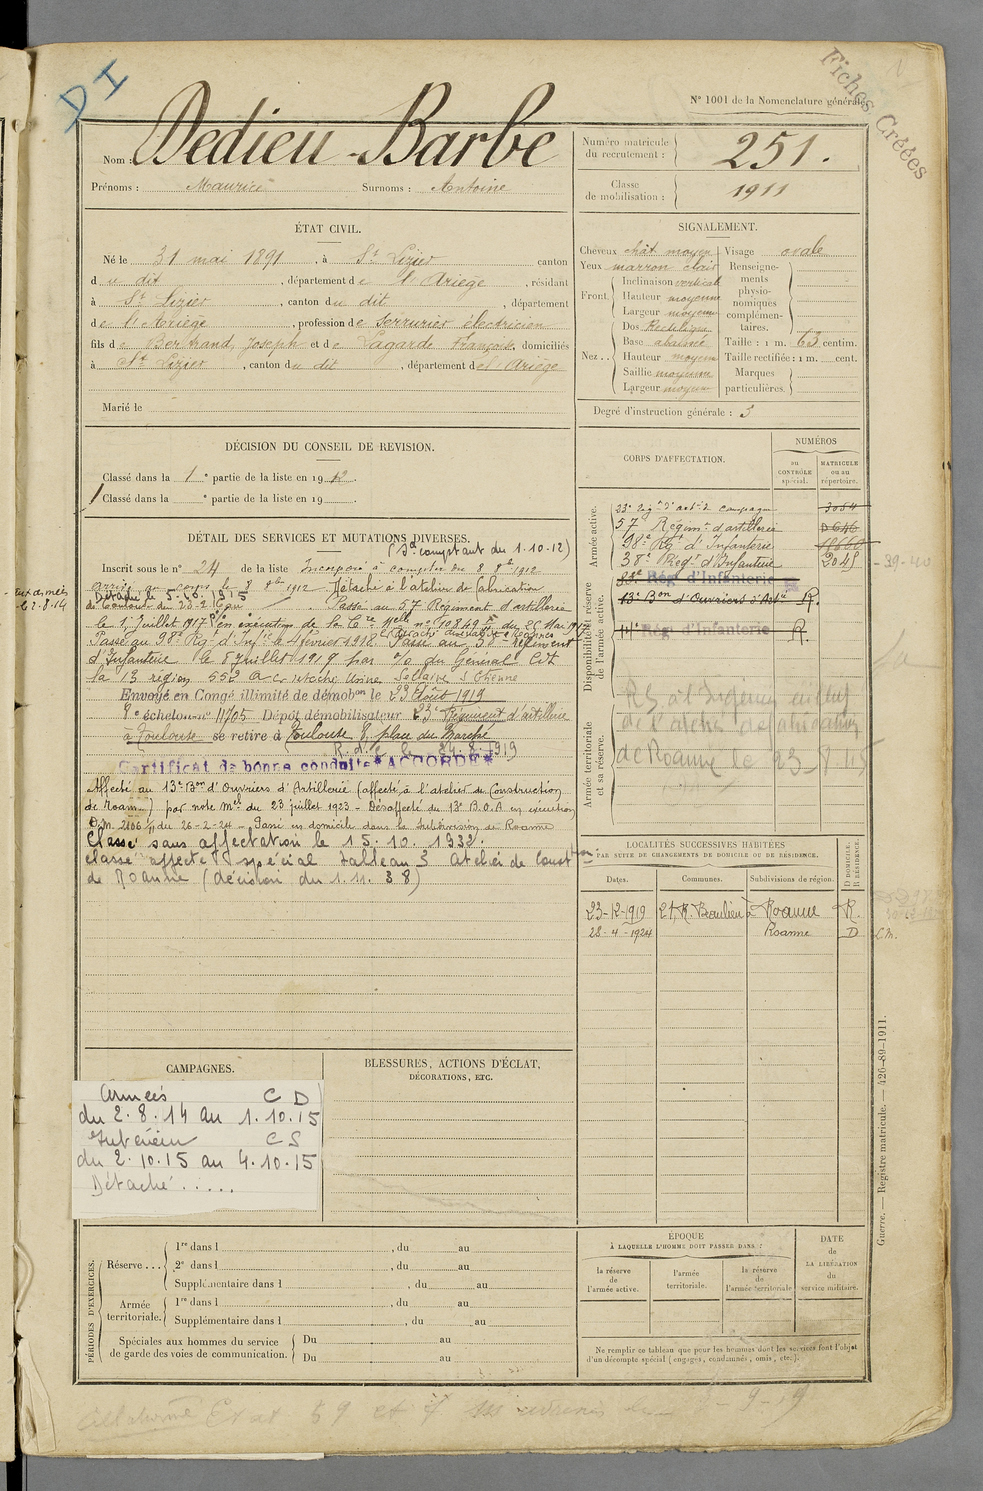 DI
Fiches Créées
N° 1001 de la Nomenclature générale
Nom : Dedieu-Barbe
Prénoms : Maurice Surnoms : Antoine
Numéro matricule du recrutement : 251.
Classe de mobilisation : 1911
ÉTAT CIVIL.
Né le 31 mai 1891, à St Lizier canton
du dit, département de l'Ariège, résidant
à St Lizier, canton du dit, département
de l'Ariège, profession de serrurier électricien
fils de Bertrand, Joseph et de Lagarde Françoise, domiciliés
à St Lizier, canton du dit, département de l'Ariège
Marié le
SIGNALEMENT.
Cheveux chât moyen
Yeux marron clair
Front.
Inclinaison verticale
Hauteur moyenne
Largeur moyenne
Nez..
Dos Rectiligne
Base abaissée
Hauteur moyen
Saillie moyenne
Largeur moyen
Visage ovale
Renseignements physionomiques complémentaires.
Taille : 1 m. 63 centim.
Taille rectifiée : 1 m. cent.
Marques particulières.
Degré d'instruction générale : 3
DÉCISION DU CONSEIL DE REVISION.
Classé dans la 1e partie de la liste en 1912.
Classé dans la e partie de la liste en 19
DÉTAIL DES SERVICES ET MUTATIONS DIVERSES.
(Sa comptant du 1.10.12)
Inscrit sous le n° 24 de la liste Incorporé à compter du 8 8bre 1912
arrivé au corps le 8 8bre 1912 Détaché à l'atelier de fabrication
Détaché le 5.10.1915
Passe au 57 Régiment d'artillerie
le 1 Juillet 1917 en exécution de la Cre Mlle n° 10849 du 25 Mai 1917
Passé au 98e Régt d'Infie le 4 février 1918 Passé au 38e Régiment
d'Infanterie le 8 Juillet 1919 par n/o du Général Cdt
la 13 région 552 Détaché Usine St Etienne
Envoyé en Congé illimité de démobon le 23 Août 1919
8e échelon n° 11705 Dépôt démobilisateur 23e Régiment d'artillerie
à Toulouse se retire à Toulouse 8, place du Marché
R.d.C. le 24.8.1919
Certificat de bonne conduite "ACCORDÉ"
Affecté au 13e Bon d'Ouvriers d'Artillerie (affecté à l'atelier de Construction
de Roanne) par note Mlle du 23 juillet 1923 - Désaffecté du 13e B.O.A en exécution
D.M. 2106 1/11 du 26-2-24 - Passé en domicile dans la Subdivision de Roanne
Classé sans affectation le 15.10.1932.
classé affecté spécial tableau 3 Atelier de Const on
de Roanne (décision du 1.11.38)
CORPS D'AFFECTATION.
NUMÉROS
AU CONTRÔLE spécial.
MATRICULE ou au répertoire.
Armée active.
23e Régt d'artie de campagne 3054
57e Régimt d'artillerie D 646
98e Rgt d'Infanterie 18660
38e Régt d'Infanterie 2045
39-40
Disponibilité et réserve de l'armée active.
83e Rég d'Infanterie
13e Bon d'Ouvriers d'Artie R.
Rég d'Infanterie R.
Armée territoriale et sa réserve.
de l'atelier de fabrication
de Roanne le 23-8-15
LOCALITÉS SUCCESSIVES HABITÉES
PAR SUITE DE CHANGEMENTS DE DOMICILE OU DE RÉSIDENCE.
Dates. Communes. Subdivisions de région. D DOMICILE. R RÉSIDENCE.
23-12-1919 21, R. Beaulieu à Roanne R.
28-4-1924 Roanne D
CAMPAGNES.
Armées C D
du 2.8.14 au 1.10.15
Intérieur C S
du 2.10.15 au 4.10.15
Détaché.....
BLESSURES, ACTIONS D'ÉCLAT,
DÉCORATIONS, ETC.
PÉRIODES D'EXERCICES.
Réserve...
1re dans l , du au
2e dans l , du au
Supplémentaire dans l , du au
Armée territoriale.
1re dans l , du au
Supplémentaire dans l , du au
Spéciales aux hommes du service de garde des voies de communication.
Du au
Du au
ÉPOQUE
À LAQUELLE L'HOMME DOIT PASSER DANS :
la réserve de l'armée active.
l'armée territoriale.
la réserve de l'armée territoriale
DATE de LA LIBÉRATION du service militaire.
Ne remplir ce tableau que pour les hommes dont les services font l'objet
d'un décompte spécial (engagés, condamnés, omis, etc.).
Guerre. — Registre matricule. — 426-89-1911.